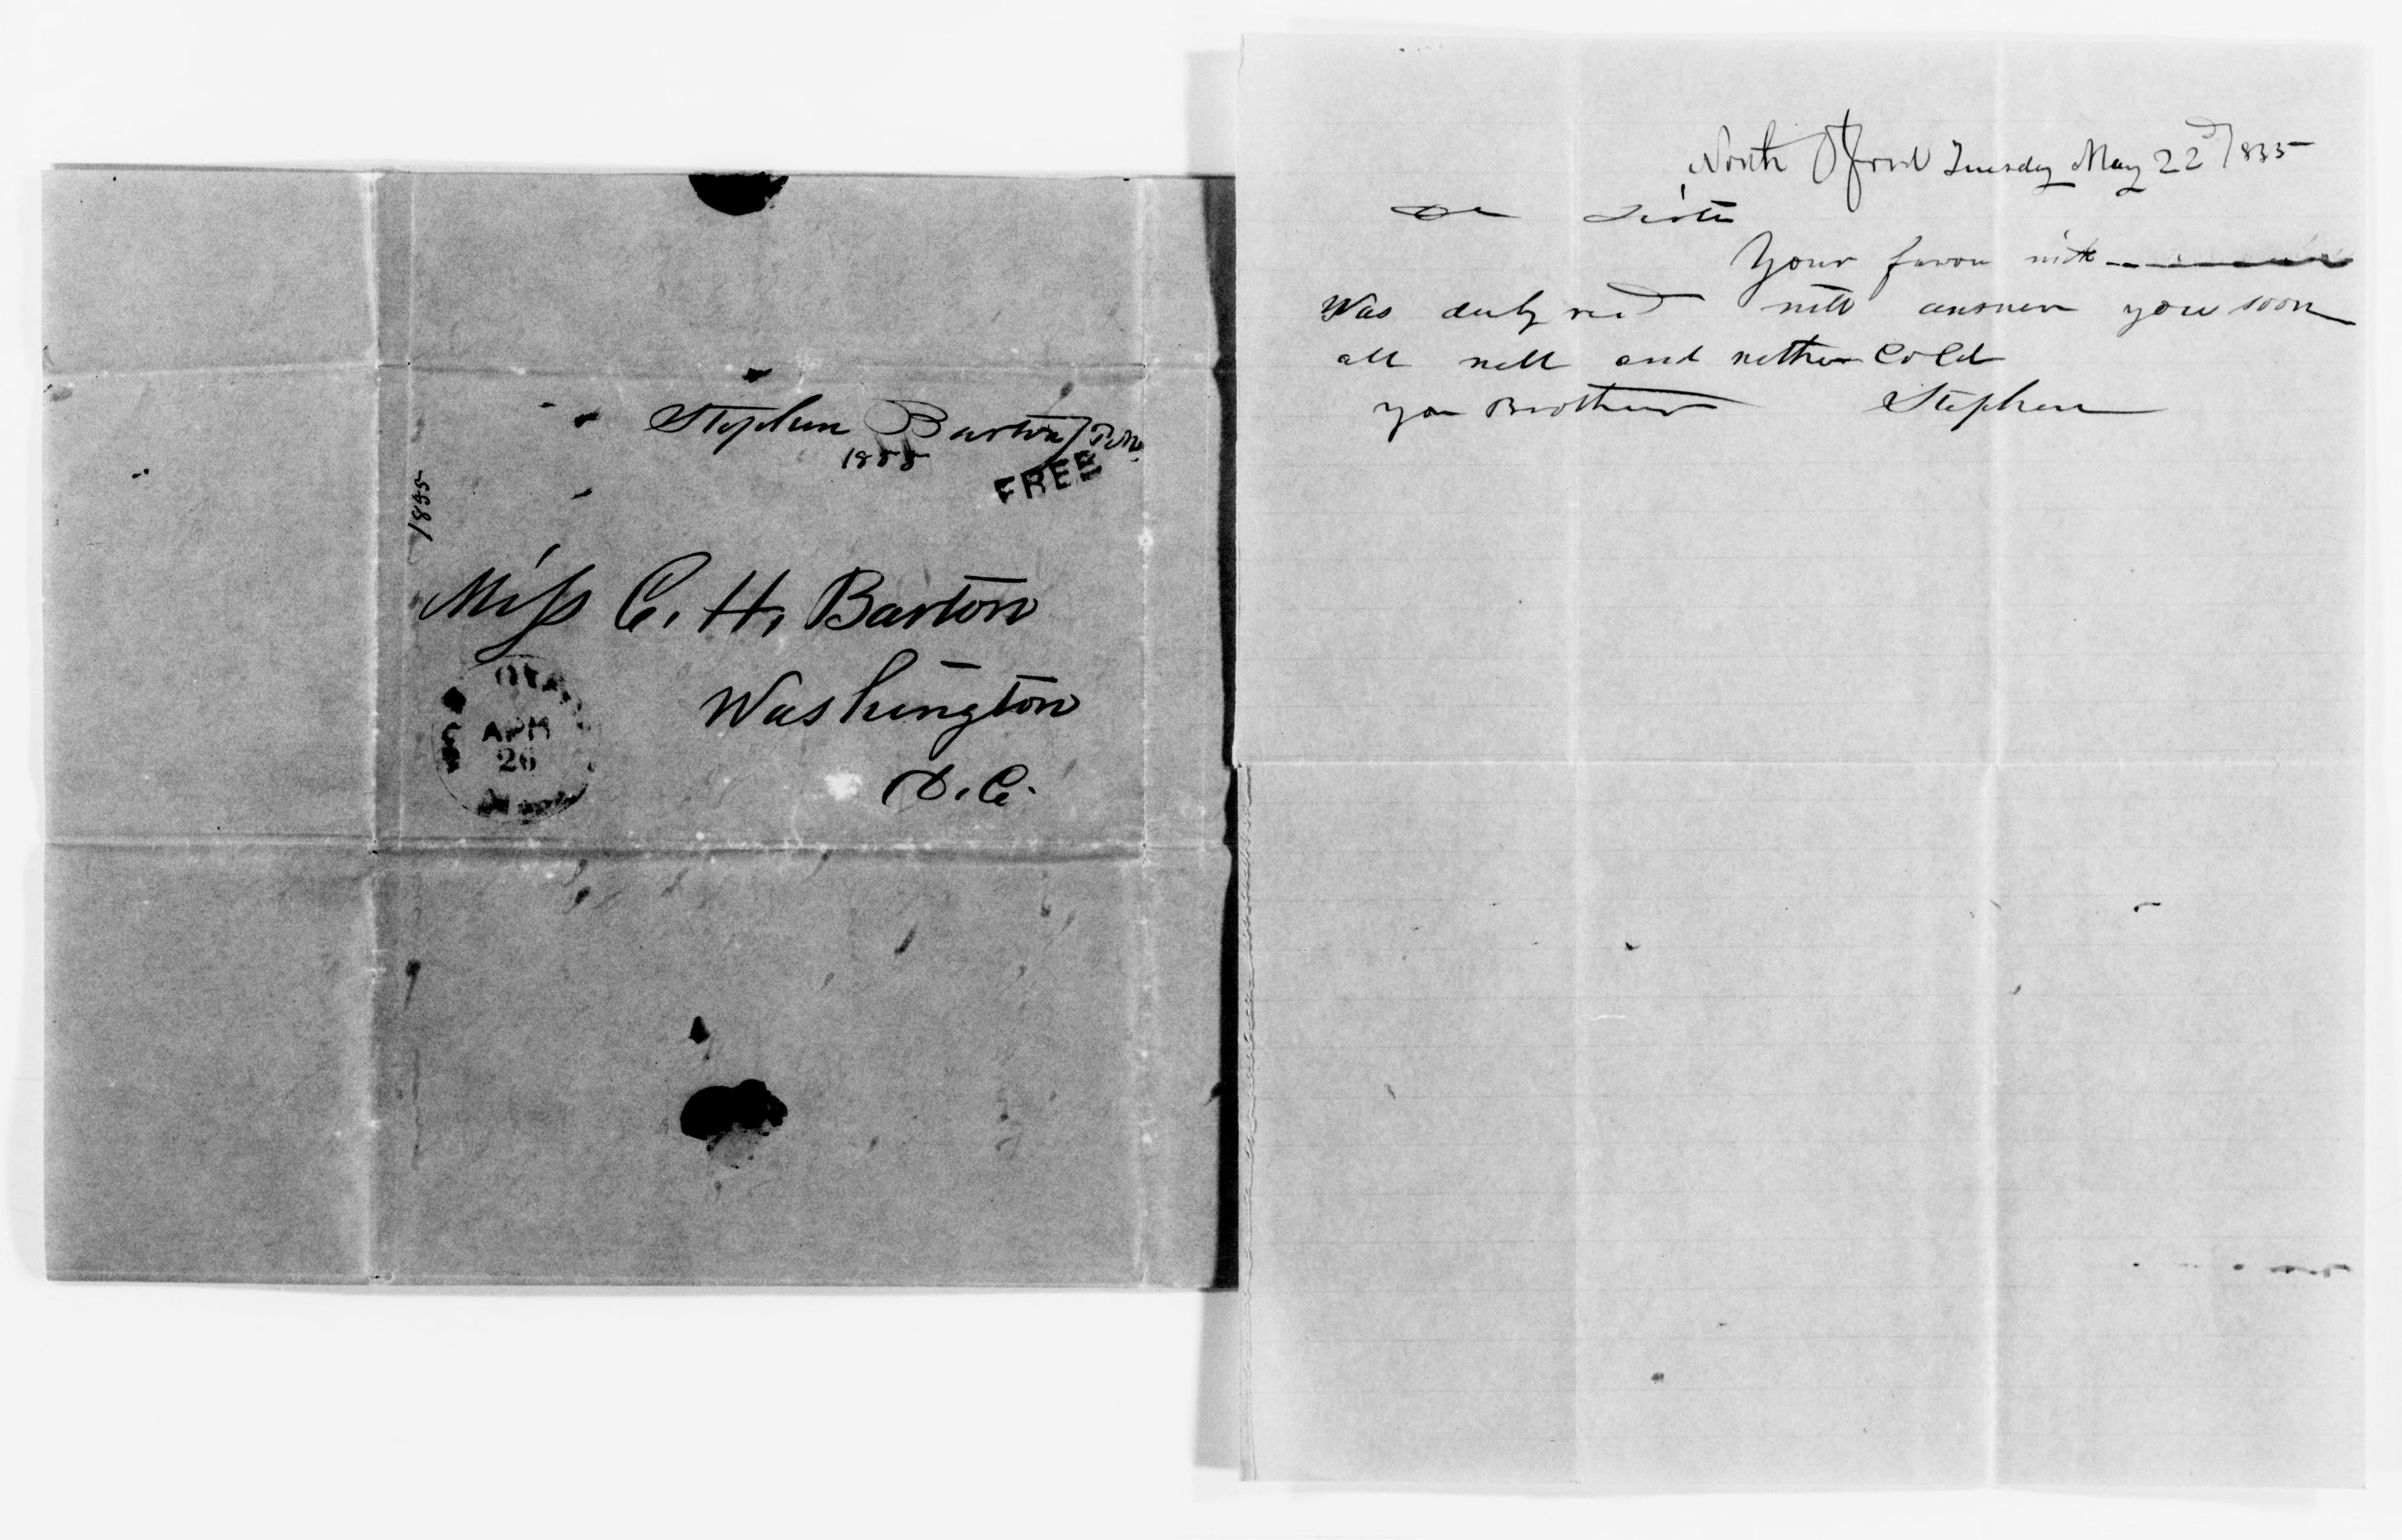 Stephen Barton P.M.
1855
FREE
1855
Miss C. H. Barton
Washington
D. C.
APR
26
North Oxford Tuesday May 22d 1855
Dr Sister
Your favor with
Was duly recd will answer you soon
all well and rether Cold
you Brother Stephen